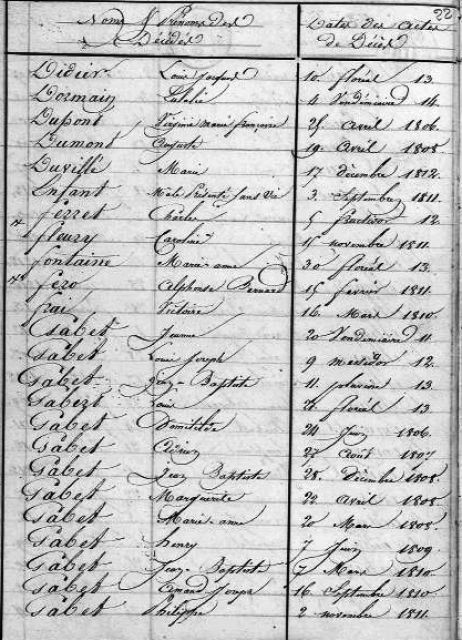 22
Noms & Prénoms des Dates des actes
Décédés de Décès
Didier Louis Joseph 10 floréal 13.
Dormain Eulalie 4 Vendémiaire 14.
Dupont Virginie marie françoise 25 avril 1806.
Dumont Auguste 19. avril 1808
Duvillé Marie 17 décembre 1812.
Enfant Mâle Présenté Sans Vie 3. Septembre 1811.
ferret Charles 5 fructidor 12.
fleury Caroline 15 novembre 1811.
fontaine Marie-anne 30 floréal 13.
féro Alphonse Bernard 15 février 1811.
frai Victoire 16. Mars 1810.
Gabet Jeanne 20 Vendémiaire 11.
Gabet Louis Joseph 9 messidor 12.
Gabet Jean-Baptiste 11. prairial 13.
Gabezt 21. floréal 13
Gabet Domitilde 24 Juin 1806.
Gabet 27 Août 1807
Gabet Jean Baptiste 28. Décembre 1808.
Gabet Marguerite 22 avril 1808
Gabet Marie-anne 20 Mars 1808.
Gabet henry 7 Juin 1809.
Gabet Jean-Baptiste 7 Mars 1810.
Gabet Amand Joseph 16 Septembre 1810
Gabet Philippe 2 novembre 1811.